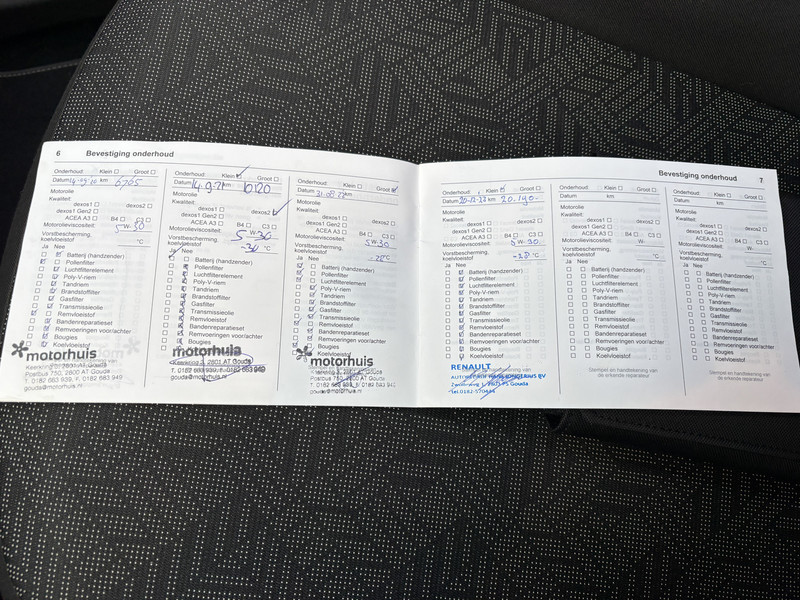 6 Bevestiging onderhoud
Onderhoud: Klein ☐ Groot ☐
Datum 14-09-20 km 6765
Motorolie
Kwaliteit:
dexos1 ☐ dexos2 ☐
dexos1 Gen2 ☐
ACEA A3 ☐ B4 ☐ C3 ☐
Motorolieviscositeit: 5W-30
Vorstbescherming,
koelvloeistof: °C
Ja Nee
Batterij (handzender)
Pollenfilter
Luchtfilterelement
Poly-V-riem
Tandriem
Brandstoffilter
Gasfilter
Transmissieolie
Remvloeistof
Bandenreparatieset
Remvoeringen voor/achter
Bougies
Koelvloeistof
motorhuis
Postbus 750, 2800 AT Gouda
T. 0182 683 939, F. 0182 683
gouda@motorhuis.nl
Onderhoud: Klein ☑ Groot ☐
Datum 14.9.21 km 10120
Motorolie
Kwaliteit:
dexos1 ☐ dexos2 ☑
dexos1 Gen2 ☐
ACEA A3 ☐ B4 ☐ C3 ☐
Motorolieviscositeit: 5W-30
Vorstbescherming,
koelvloeistof: -30 °C
Ja Nee
Batterij (handzender)
Pollenfilter
Luchtfilterelement
Poly-V-riem
Tandriem
Brandstoffilter
Gasfilter
Transmissieolie
Remvloeistof
Bandenreparatieset
Remvoeringen voor/achter
Bougies
Koelvloeistof
motorhuis
gouda@motorhuis.nl
Onderhoud: Klein ☐ Groot ☑
Datum 31-08-22 km
Motorolie
Kwaliteit:
dexos1 ☐ dexos2 ☐
dexos1 Gen2 ☐
ACEA A3 ☐ B4 ☐ C3 ☐
Motorolieviscositeit: 5W-30
Vorstbescherming,
koelvloeistof: -28°C
Ja Nee
Batterij (handzender)
Pollenfilter
Luchtfilterelement
Poly-V-riem
Tandriem
Brandstoffilter
Gasfilter
Transmissieolie
Remvloeistof
Bandenreparatieset
Remvoeringen voor/achter
Bougies
Koelvloeistof
motorhuis
gouda@motorhuis.nl
Bevestiging onderhoud 7
Onderhoud: Klein ☑ Groot ☐
Datum km 20.190-
Motorolie
Kwaliteit:
dexos1 ☐ dexos2 ☐
dexos1 Gen2 ☐
ACEA A3 ☐ B4 ☐ C3 ☐
Motorolieviscositeit: 5W-30.
Vorstbescherming,
koelvloeistof: -38°C
Ja Nee
Batterij (handzender)
Pollenfilter
Luchtfilterelement
Poly-V-riem
Tandriem
Brandstoffilter
Gasfilter
Transmissieolie
Remvloeistof
Bandenreparatieset
Remvoeringen voor/achter
Bougies
Koelvloeistof
RENAULT
Gouda
Onderhoud: Klein ☐ Groot ☐
Datum km
Motorolie
Kwaliteit:
dexos1 ☐ dexos2 ☐
dexos1 Gen2 ☐
ACEA A3 ☐ B4 ☐ C3 ☐
Motorolieviscositeit: W-
Vorstbescherming,
koelvloeistof: °C
Ja Nee
Batterij (handzender)
Pollenfilter
Luchtfilterelement
Poly-V-riem
Tandriem
Brandstoffilter
Gasfilter
Transmissieolie
Remvloeistof
Bandenreparatieset
Remvoeringen voor/achter
Bougies
Koelvloeistof
Stempel en handtekening van
de erkende reparateur
Onderhoud: Klein ☐ Groot ☐
Datum km
Motorolie
Kwaliteit:
dexos1 ☐ dexos2 ☐
dexos1 Gen2 ☐
ACEA A3 ☐ B4 ☐ C3 ☐
Motorolieviscositeit: W-
Vorstbescherming,
koelvloeistof: °C
Ja Nee
Batterij (handzender)
Pollenfilter
Luchtfilterelement
Poly-V-riem
Tandriem
Brandstoffilter
Gasfilter
Transmissieolie
Remvloeistof
Bandenreparatieset
Remvoeringen voor/achter
Bougies
Koelvloeistof
Stempel en handtekening van
de erkende reparateur